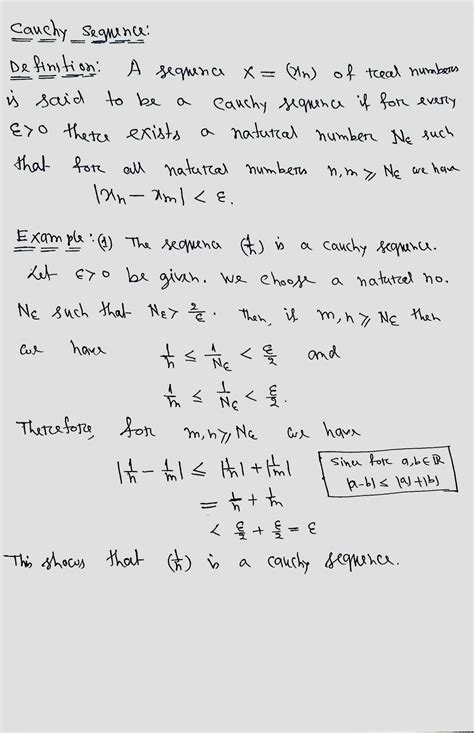 Cauchy Sequence:
Definition: A sequence X = (xn) of real numbers
is said to be a cauchy sequence if for every
ε>0 there exists a natural number Nε such
that for all natural numbers n,m ≥ Nε we have
|xn − xm| < ε.
Example: (1) The sequence (1/n) is a cauchy sequence.
Let ε>0 be given. We choose a natural no.
Nε such that Nε > 2/ε. Then, if m,n ≥ Nε then
we have 1/n ≤ 1/Nε < ε/2 and
1/m ≤ 1/Nε < ε/2.
Therefore, for m,n ≥ Nε we have
|1/n − 1/m| ≤ |1/n| + |1/m|
Since for a,b ∈ ℝ
|a−b| ≤ |a|+|b|
= 1/n + 1/m
< ε/2 + ε/2 = ε
This shows that (1/n) is a cauchy sequence.